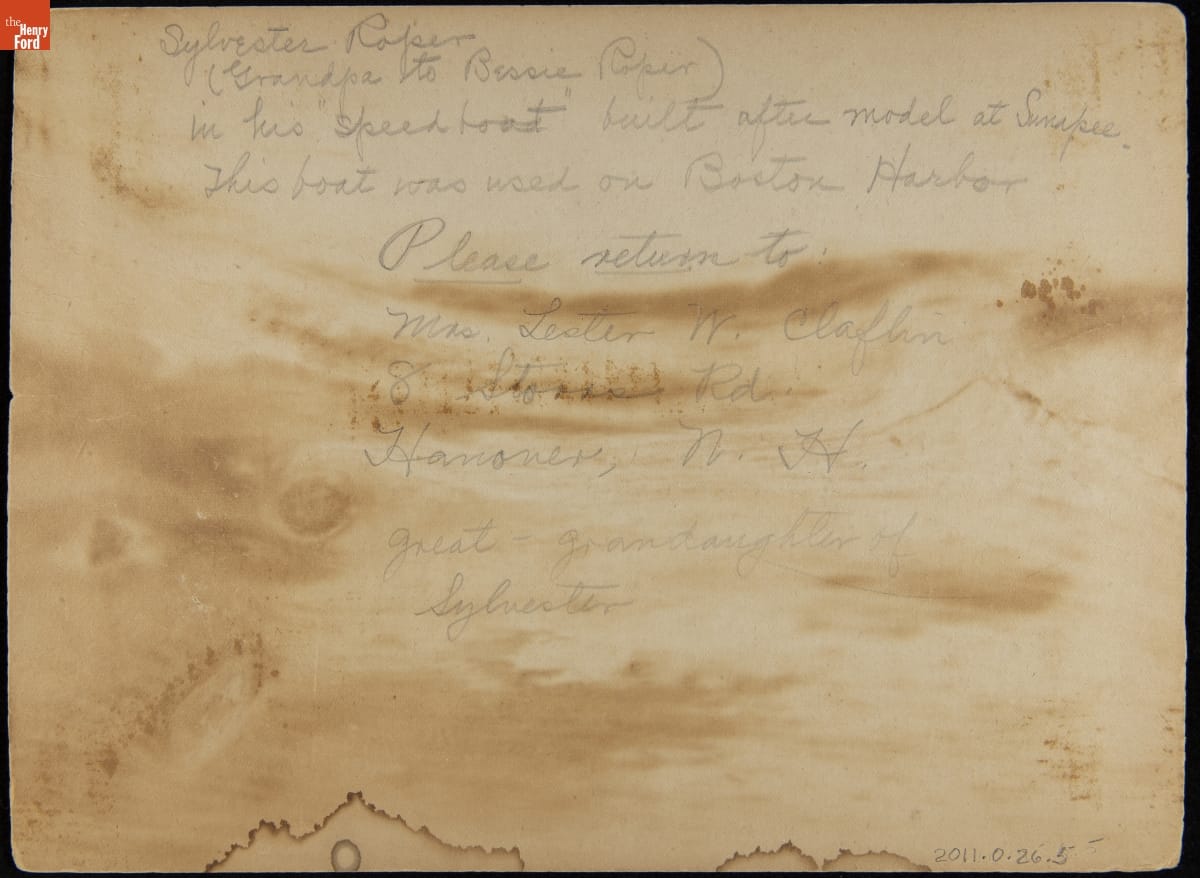 the
Henry
Ford
Sylvester Roper
(Grandpa to Bessie Roper)
in his "speedboat" built after model at Sunapee.
This boat was used on Boston Harbor
Please return to:
Mrs. Lester W. Claflin
8 Storrs Rd.
Hanover, N. H.
great - grandaughter of
Sylvester
2011.0.26.5